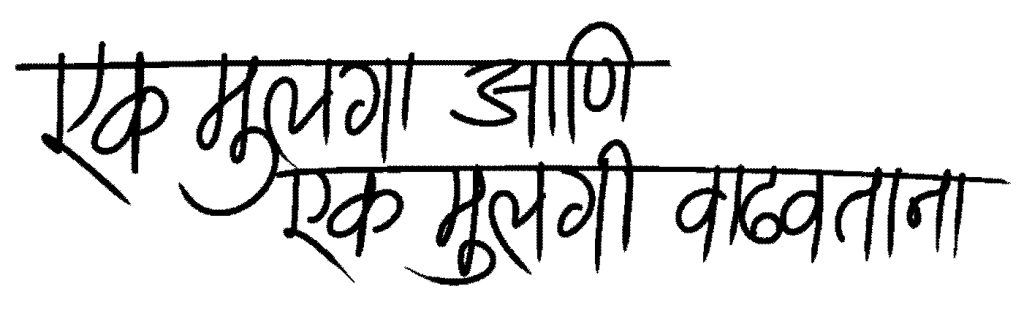 एक मुलगा आणि
एक मुलगी वाढवताना